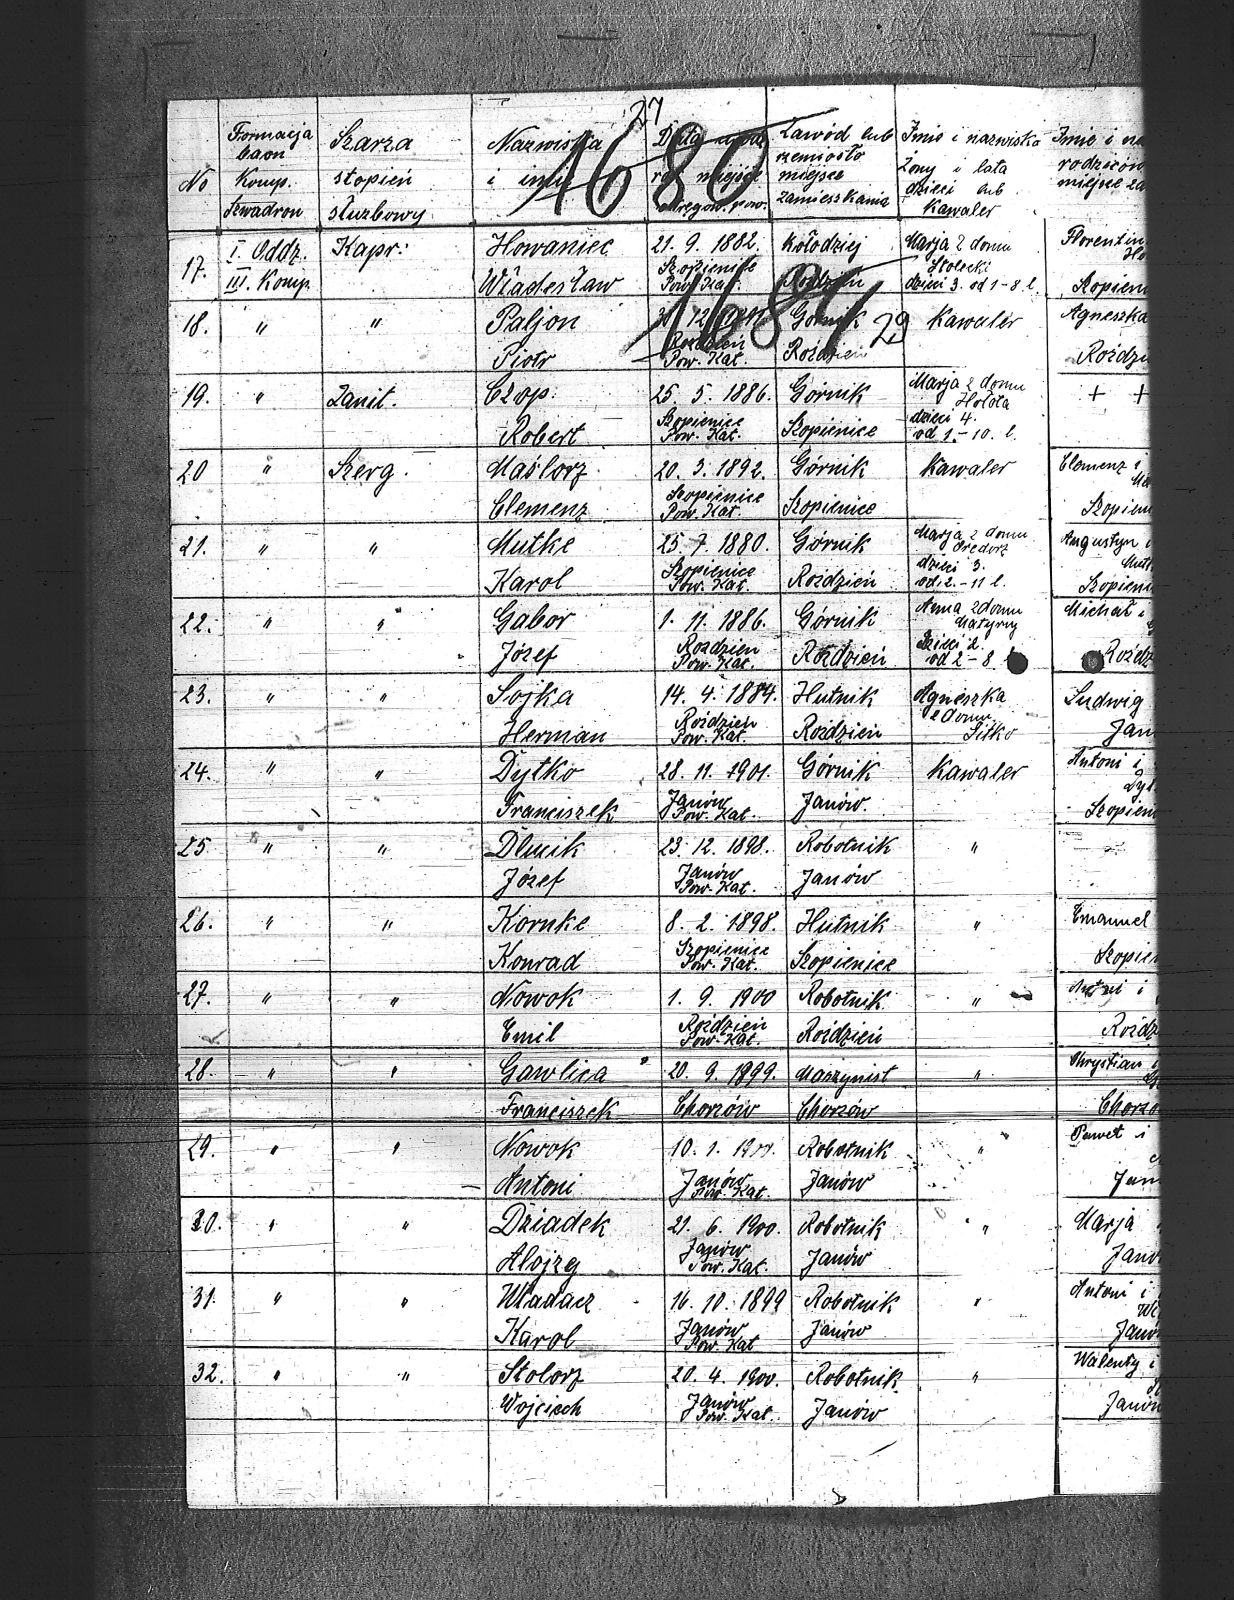 27
1680
No
Formacja baon Komp. Szwadron
Szarza stopień służbowy
Nazwiska i imię
Zawód lub rzemiosło miejsce zamieszkania
Imie i nazwisko żony i lata dzieci lub Kawaler
Imie i na
rodziców
miejsce za
17. I. Oddz. III. Komp. Kapr: Howaniec Władesław 21. 9. 1882. Szopienice Pow. Kat. Kołodziej Rozdzień Marja z domu Stolecki dzieci 3. od 1-8 l. Florentin
Szopien
1681
29
18. " " Paljon Piotr Rozdzień Pow. Kat. Górnik Roździeń Kawaler Agneszka
Roździ
19. " Zanit. Czop. Robert 25. 5. 1886. Szopienice Pow. Kat. Górnik Szopienice Marja z domu Hołota dzieci 4. od 1.-10. l. + +
20 " Szerg. Maślorz Clemenz 20. 3. 1892. Szopienice Pow. Kat. Górnik Szopienice Kawaler Clemenz i
Szopien
21. " " Mutke Karol 25. 7. 1880. Szopienice Pow. Kat. Górnik Roździeń Marja z domu dzieci 3. od 2.-11 l. Augustyn
Mut
Szopieni
22. " " Gabor Józef 1. 11. 1886. Rozdzien Pow. Kat. Górnik Roździeń Anna z domu Matyrny Dzieci 2. od 2-8 Michał i
Roźdz
23. " " Sojka Herman 14. 4. 1884. Roździen Pow. Kat. Hutnik Roździeń Agneszka z domu Sitko Ludwig
Jan
24. " " Dytko Franciszek 28. 11. 1901. Janów Pow. Kat. Górnik Janów. Kawaler Antoni i
Dyt
Szopien
25. " " Józef 23. 12. 1898. Janów Pow. Kat. Robotnik Janów "
26. " " Kornke Konrad 8. 2. 1898. Szopienice Pow. Kat. Hutnik Szopienice " Emanuel
Szopien
27. " " Nowok Emil 1. 9. 1900 Roździeń Pow. Kat. Robotnik Roździeń " Antoni i
Roźdz
28. " " Gawlica Franciszek 20. 9. 1899. Chorzów Maszynist Chorzów " Chrystian
Chorzo
29. " " Nowok Antoni 10. 1. Janów Pow. Kat. Robotnik Janów " Paweł i
Jan
30. " " Dziadek Alojzy 21. 6. 1900. Janów Pow. Kat. Robotnik Janów " Marja
Jano
31. " " Władacz Karol 16. 10. 1899 Janów Pow. Kat Robotnik Janów " Antoni i
Janó
32. " " Stolorz Wojciech 20. 4. 1900. Janów Pow. Kat. Robotnik Janów " Walenty i
Janów